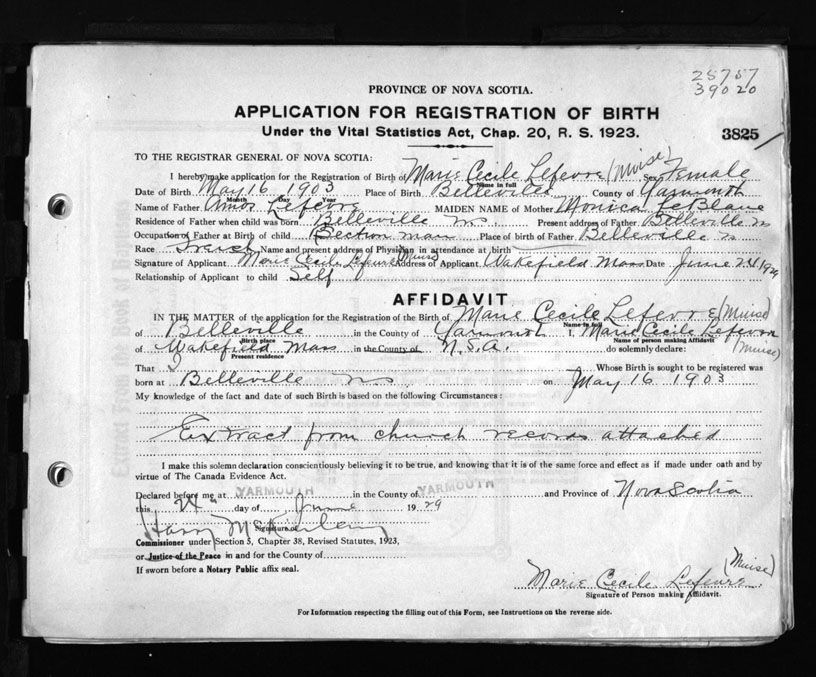 28707
39020
PROVINCE OF NOVA SCOTIA.
APPLICATION FOR REGISTRATION OF BIRTH
Under the Vital Statistics Act, Chap. 20, R. S. 1923.
3825
TO THE REGISTRAR GENERAL OF NOVA SCOTIA:
I hereby make application for the Registration of Birth of Marie Cecile Lefevre (Muise) Sex Female
Name in full
Date of Birth May 16 1903 Place of Birth Belleville County of Yarmouth
Month Day Year
Name of Father Amos Lefevre MAIDEN NAME of Mother Monica LeBlanc
Residence of Father when child was born Belleville N.S. Present address of Father Belleville N.S.
Occupation of Father at Birth of child Section man Place of birth of Father Belleville N.S.
Race French Name and present address of Physician in attendance at birth
Signature of Applicant Marie Cecile Lefevre (Muise) Address of Applicant Wakefield Mass Date June 24 1929
Relationship of Applicant to child Self
AFFIDAVIT
IN THE MATTER of the application for the Registration of the Birth of Marie Cecile Lefevre (Muise)
Name in full
of Belleville in the County of Yarmouth I, Marie Cecile Lefevre
Birth place Name of person making Affidavit
of Wakefield Mass in the County of U.S.A. do solemnly declare: (Muise)
Present residence
That I Whose Birth is sought to be registered was
born at Belleville N.S. on May 16 1903
My knowledge of the fact and date of such Birth is based on the following Circumstances:
Extract from church records attached
I make this solemn declaration conscientiously believing it to be true, and knowing that it is of the same force and effect as if made under oath and by
virtue of The Canada Evidence Act.
Declared before me at YARMOUTH in the County of YARMOUTH and Province of Nova Scotia
this 24 day of June 1929
Harry
Signature of
Commissioner under Section 5, Chapter 38, Revised Statutes, 1923,
or Justice of the Peace in and for the County of
If sworn before a Notary Public affix seal.
Marie Cecile Lefevre (Muise)
Signature of Person making Affidavit.
For Information respecting the filling out of this Form, see Instructions on the reverse side.